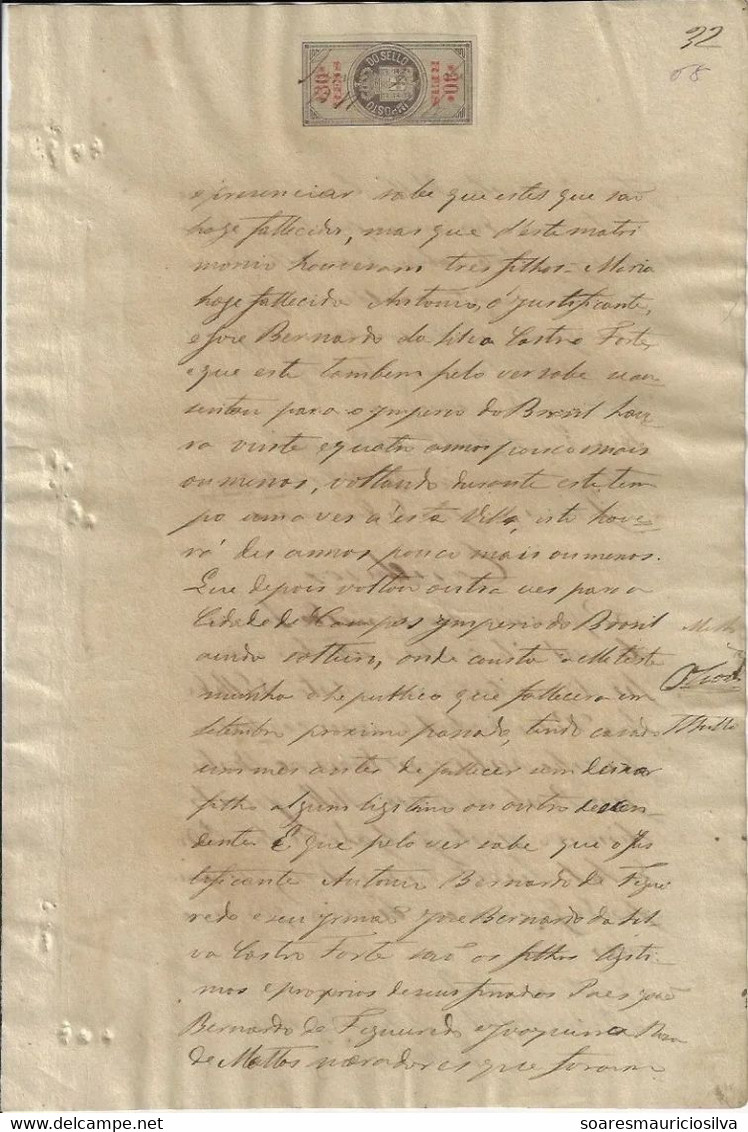 32
68
DO SELLO
IMPOSTO
REIS
REIS
e presenciar sabe que estes que saõ
hoge fallecidos, mas que d'este matri
monio houveram tres filhos = Maria
hoge fallecida Antonio, o justificante,
e Jose Bernardo da Silva Castro Forte,
e que este tambem pelo ver sabe se au
sentou para o ymperio do Brasil have
ra vinte e quatro annos pouco mais
ou menos, voltando durante este tem
po uma ves a esta Villa, isto have
rá des annos pouco mais ou menos.
Que depois voltou outra ves para a
Cidade de Campos ymperio do Brasil
ainda solteiro, onde consta a elle teste
munha e he publico que fallecera em
setembro proximo passado, tendo casado
um mes antes de fallecer sem deixar
filho algum ligitimo ou outro descen
dente. E que pelo ver sabe que o jus
tificante Antonio Bernardo de Figue
redo e seu yrmaõ Jose Bernardo da Sil
va Castro Forte saõ os filhos legiti
mos e proprios de seus finados Paes João
Bernardo de Figueiredo e Joaquina Rosa
de Mattos moradores que foram
soaresmauriciosilva